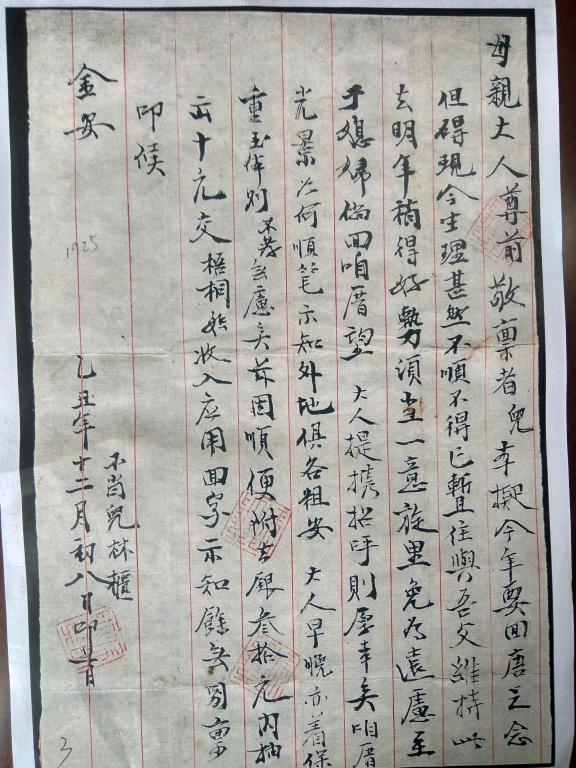 母親大人尊前敬稟者兒本擬今年要回唐之念
但碍現今生理甚然不順不得已暫且住與吾父維持此
去明年稍得好勢須當一意旋里免為遠慮至
于媳婦倘回咱厝望 大人提携招呼則愿幸矣咱厝
光景如何順笔示知外地俱各粗安 大人早晚亦着保
重玉体則不孝無慮矣茲因順便附去銀叁拾元內抽
出十元交梧桐 收入应用回字示知餘無別稟
叩候
金安
不肖兒林櫃
乙丑年十二月初八日叩首
1925
3